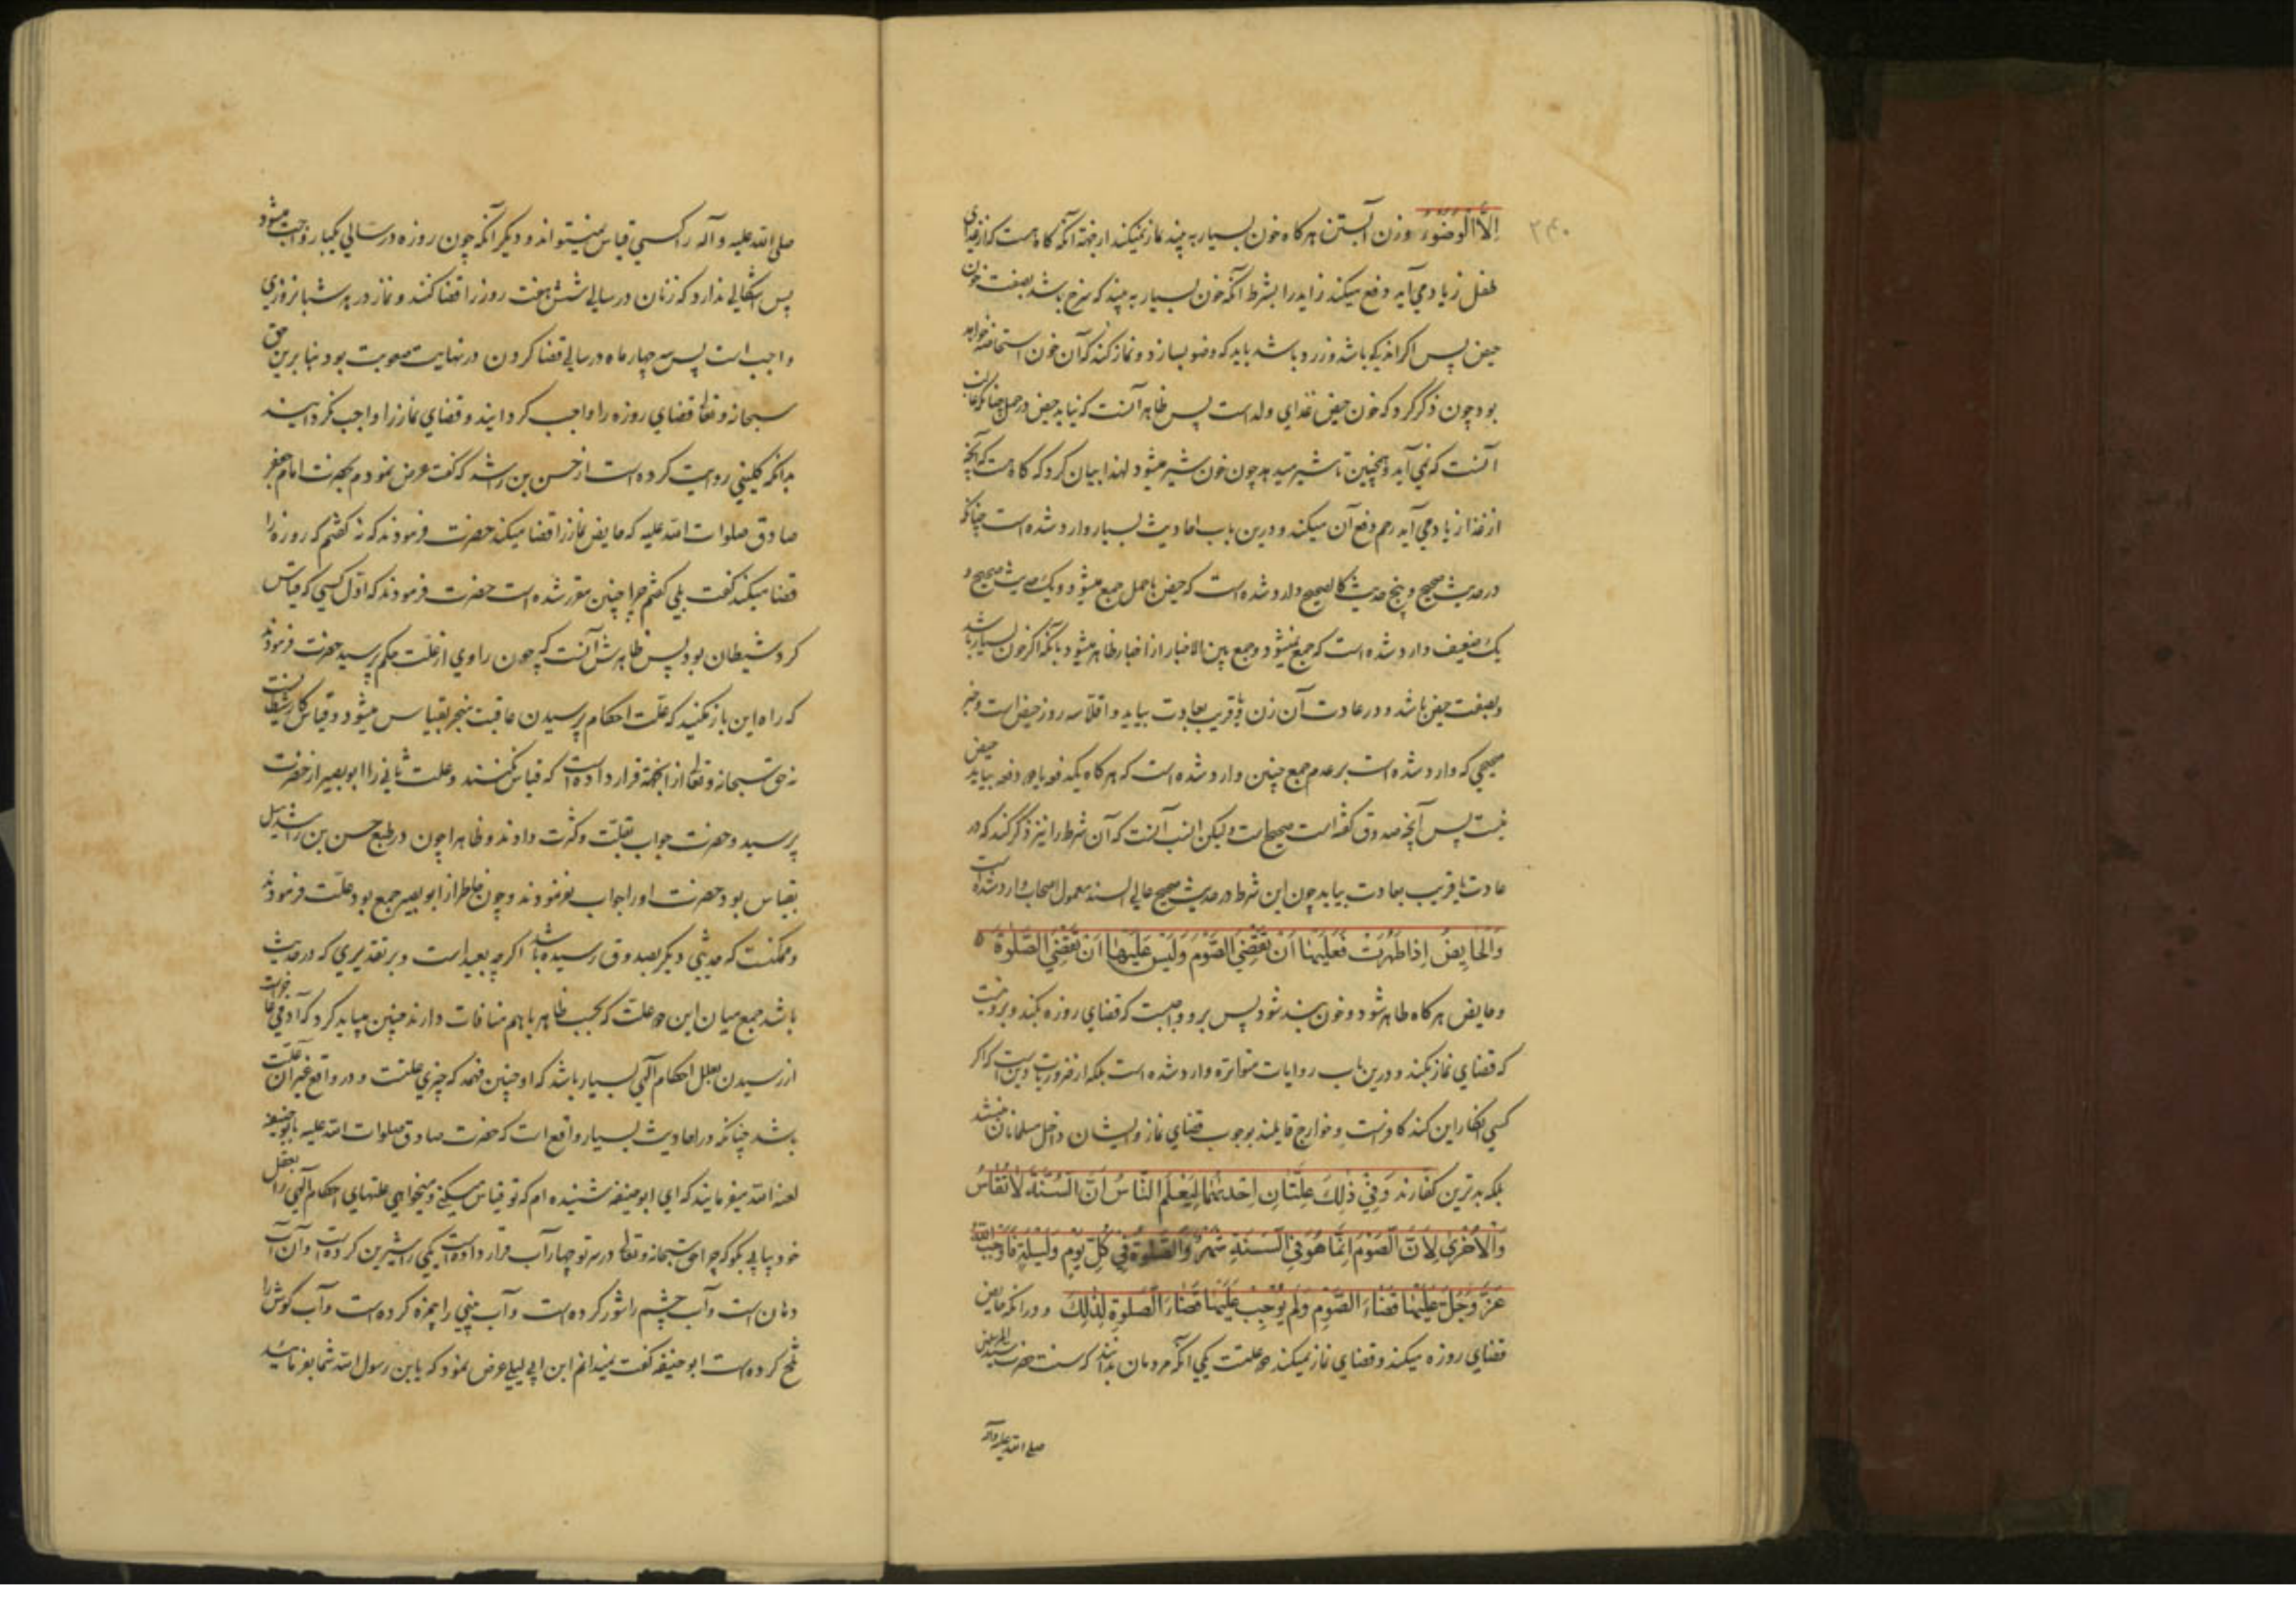 ۳۴۰
اِلَّا الْوُضُوءُ وزن آبستن هر کاه خون بسیار به بیند نماز نمیکند از جهة آنکه کاه هست که از غذای
طفل زیاد می‌آید دفع میکند زاید را بشرط آنکه خون بسیار به بیند که سرخ باشد بصفت خون
حیض پس اکر اندکی باشد و زرد باشد باید که وضو بسازد و نماز کند که آن خون استحاضه خواهد
بود چون ذکر کرد که خون حیض غذای ولد است پس ظاهر آنست که نیاید حیض در حمل چنانکه غالب
آنست که نمی آید و همچنین تا شیر میدهد چون خون شیر میشود لهذا بیان کرد که کاه هست که آنچه
از غذا زیاد می آید رحم دفع آن میکند و درین باب احادیث بسیار وارد شده است چنانکه
در حدیث صحیح و پنج حدیث کالصحیح وارد شده است که حیض با حمل جمع میشود و یک حدیث صحیح و
یک ضعیف وارد شده است که جمع نمیشود و جمع بین الاخبار از اخبار ظاهر میشود بآنکه اکر خون بسیار باشد
و بصفت حیض باشد و در عادت آن زن یا قریب بعادت بیاید و اقلا سه روز حیض است و خبر
صحیحی که وارد شده است بر عدم جمع چنین وارد شده است که هر کاه یکدفعه یا دو دفعه بیاید حیض
نیست پس آنچه صدوق کفته است صحیح است ولیکن انسب آنست که آن شرط را نیز ذکر کند که در
عادت یا قریب بعادت بیاید چون این شرط در حدیث صحیح عالی السند معمول اصحاب وارد شده است
وَالْحَایِضُ اِذَا طَهُرَتْ فَعَلَیْهَا اَنْ تَقْضِیَ الصَّوْمَ وَلَیْسَ عَلَیْهَا اَنْ تَقْضِیَ الصَّلٰوةَ
و حایض هر کاه طاهر شود و خون بند شود پس برو واجبست که قضای روزه بکند و برو نیست
که قضای نماز بکند و درین باب روایات متواتره وارد شده است بلکه از ضروریات دین است که اکر
کسی انکار این کند کافرست و خوارج قایلند بوجوب قضای نماز و ایشان داخل مسلمانان نیستند
بلکه بدترین کفارند وَفِی ذٰلِکَ عِلَّتَانِ اِحْدٰیهُمَا لِیَعْلَمَ النَّاسُ اَنَّ السُّنَّةَ لَاتُقَاسُ
وَالْاُخْرٰی لِاَنَّ الصَّوْمَ اِنَّمَا هُوَ فِی السَّنَةِ شَهْرٌ وَالصَّلٰوةُ فِی کُلِّ یَوْمٍ وَلَیْلَةٍ فَاَوْجَبَ اللهُ
عَزَّ وَجَلَّ عَلَیْهَا قَضَاءَ الصَّوْمِ وَلَمْ یُوْجِبْ عَلَیْهَا قَضَاءَ الصَّلٰوةِ لِذٰلِکَ و در آنکه حایض
قضای روزه میکند و قضای نماز نمیکند دو علتست یکی آنکه مردمان بدانند که سنت حضرت سید المرسلین
صلی الله علیه وآله
صلی الله علیه وآله را کسی قیاس نمیتواند و دیکر آنکه چون روزه در سالی یکبار واجب میشود
پس اشکالی ندارد که زنان در سالی شش هفت روز را قضا کنند و نماز در هر شبانروزی
واجب است پس سه چهار ماه در سالی قضا کردن در نهایت صعوبت بود بنا برین حق
سبحانه و تعالی قضای روزه را واجب کردانید و قضای نماز را واجب نکردانید
بدانکه کلینی روایت کرده است از حسن بن راشد که کفت عرض نمودم بحضرت امام جعفر
صادق صلوات الله علیه که حایض نماز را قضا میکند حضرت فرمودند که نه کفتم که روزه را
قضا میکند کفت بلی کفتم چرا چنین مقرر شده است حضرت فرمودند که اول کسی که قیاس
کرد شیطان بود پس ظاهرش آنست که چون راوی از علّت حکم پرسید حضرت فرمودند
که راه این باز نکنید که علّت احکام پرسیدن عاقبت منجر بقیاس میشود و قیاس کار شیطانست
نه حق سبحانه و تعالی از اینجهة قرار داده است که قیاس نکنند و علت ثانی را ابو بصیر از حضرت
پرسید و حضرت جواب بقلّت و کثرت دادند و ظاهرا چون در طبع حسن بن راشد میل
بقیاس بود حضرت او را جواب نفرمودند و چون خاطر از ابو بصیر جمع بود علّت فرمودند
و ممکنست که حدیثی دیکر بصدوق رسیده باشد اکرچه بعید است و بر تقدیری که در حدیث
باشد جمع میان این دو علت که بحسب ظاهر با هم منافات دارند چنین میباید کرد که آدمی
از رسیدن بعلل احکام آلهی بسیار باشد که او چنین فهمد که چیزی علتست و در واقع غیر آن علّت
باشد چنانکه در احادیث بسیار واقع است که حضرت صادق صلوات الله علیه بابو حنیفه
لعنه الله میفرمایند که ای ابو حنیفه شنیده ام که تو قیاس میکنی و میخواهی علتهای احکام آلهی را بعقل
خود بیابی بکو که چرا حق سبحانه و تعالی در سر تو چهار آب قرار داده است یکی را شیرین کرده است و آن آب
دهان است و آب چشم را شور کرده است و آب بینی را بیمزه کرده است و آب کوش را
تلخ کرده است ابو حنیفه کفت نمیدانم ابن ابی لیلی عرض نمود که یا بن رسول الله شما بفرمائید